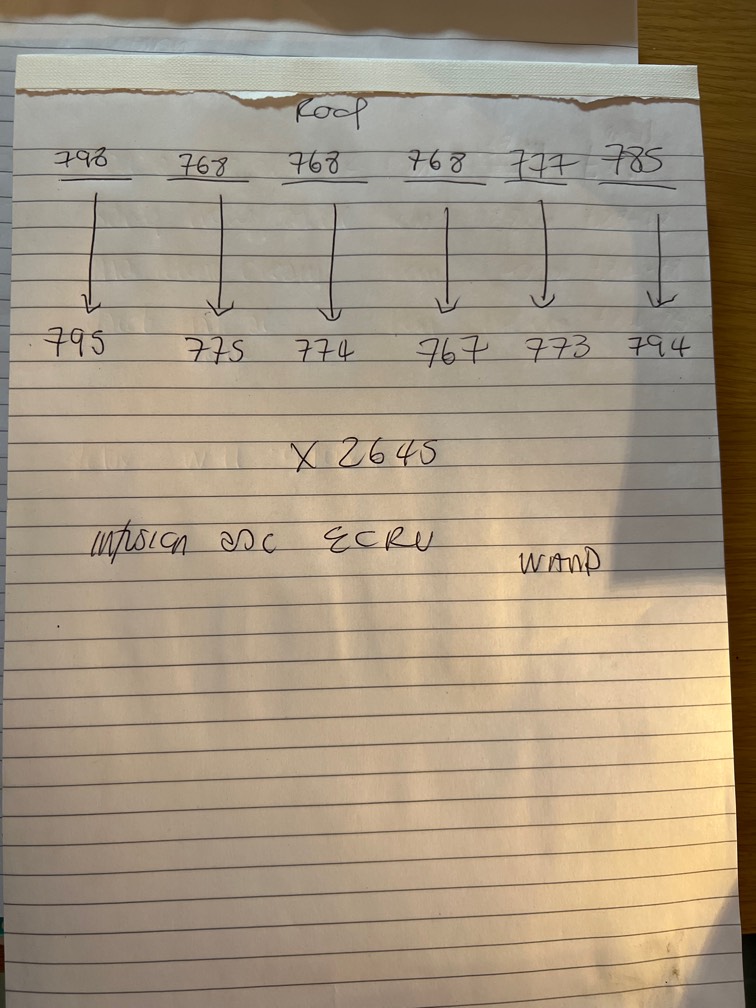 Roof
798 768 768 768 777 785
795 775 774 767 773 794
X 2645
ECRU
WAND